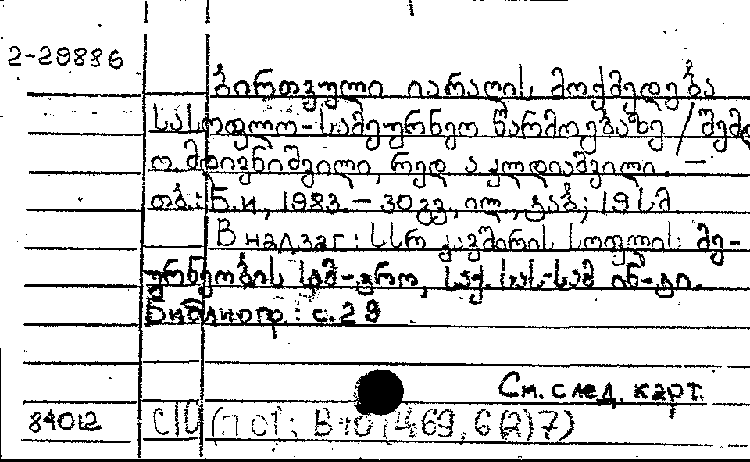 2-29886
ბირთვული იარაღის მოქმედება
სასოფლო-სამეურნეო წარმოებაზე / შემდ
ო. მდივნიშვილი, რედ. ა. კლდიაშვილი. —
თბ.: Б.и, 1983. — 30 გვ., ილ., გაბ; 19 სმ.
В надзаг: სსრ კავშირის სოფლის მე-
ურნეობის სამ-გრო, საქ. სას-სამ ინ-ტი.
Библиогр.: с. 29
См. след. карт.
84012